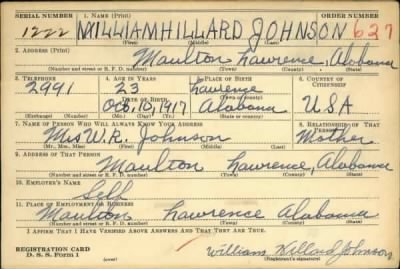 SERIAL NUMBER 1. NAME (Print) ORDER NUMBER
1222 WILLIAM HILLARD JOHNSON 627
(First) (Middle) (Last)
2. ADDRESS (Print)
Maulton Lawrence, Alabama
(Number and street or R. F. D. number) (Town) (County) (State)
3. TELEPHONE 4. AGE IN YEARS 5. PLACE OF BIRTH 6. COUNTRY OF CITIZENSHIP
2991 23 Lawrence
(Town or county)
DATE OF BIRTH
Oct, 10, 1917 Alabama USA
(Exchange) (Number) (Mo.) (Day) (Yr.) (State or country)
7. NAME OF PERSON WHO WILL ALWAYS KNOW YOUR ADDRESS 8. RELATIONSHIP OF THAT PERSON
Mrs W.R. Johnson Mother
(Mr., Mrs., Miss) (First) (Middle) (Last)
9. ADDRESS OF THAT PERSON
Maulton Lawrence, Alabama
(Number and street or R. F. D. number) (Town) (County) (State)
10. EMPLOYER'S NAME
Self
11. PLACE OF EMPLOYMENT OR BUSINESS
Maulton Lawrence Alabama
(Number and street or R. F. D. number) (Town) (County) (State)
I AFFIRM THAT I HAVE VERIFIED ABOVE ANSWERS AND THAT THEY ARE TRUE.
REGISTRATION CARD
D. S. S. Form 1 William Hillard Johnson
(over) (Registrant's signature)